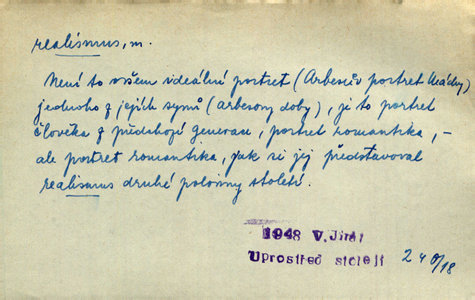 realismus, m.
Není to ovšem ideální portret (Arbesův portret Máchy)
jednoho z jejich synů (arbesovy doby), je to portret
člověka z předchozí generace, portret romantika, –
ale portret romantika, jak si jej představoval
realismus druhé poloviny století.
1948 V. Jirát
Uprostřed století
240/18